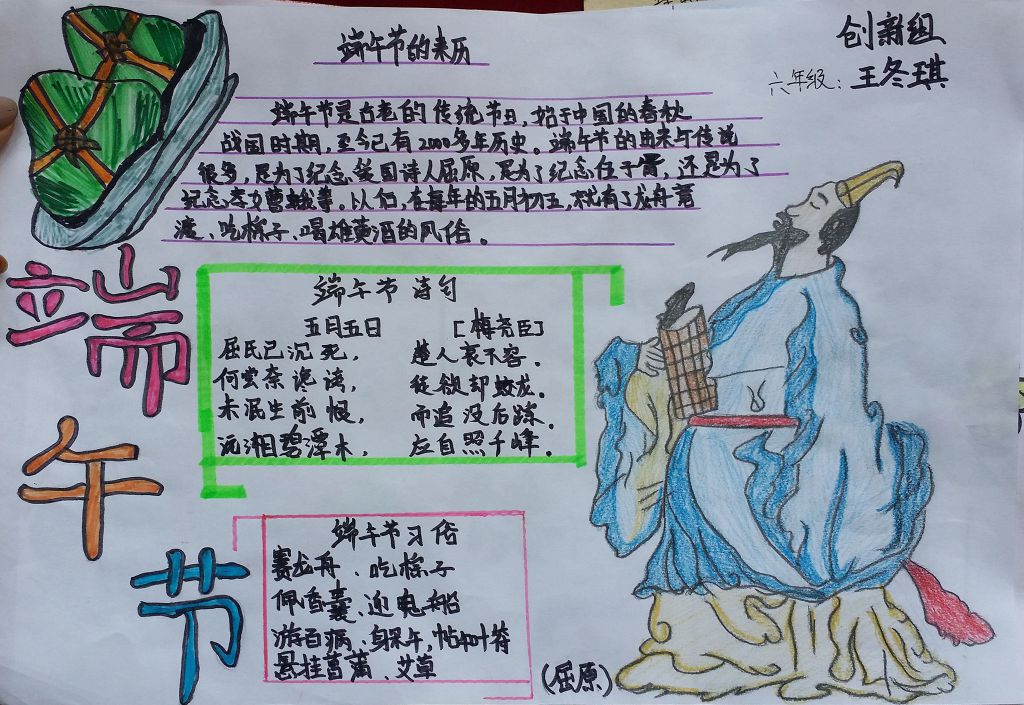 创新组
六年级：王冬琪
端午节的来历
端午节是古老的传统节日，始于中国的春秋
战国时期，至今已有2000多年历史。端午节的由来与传说
很多，是为了纪念爱国诗人屈原，是为了纪念伍子胥，还是为了
纪念孝女曹娥等。以们，在每年的五月初五，就有了龙舟竞
渡、吃粽子、喝雄黄酒的风俗。
端午节
端午节诗句
五月五日 [梅尧臣]
屈氏已沉死，楚人哀不容。
何尝奈谗谤，徒欲却蛟龙。
未泯生前恨，而追没后踪。
沅湘碧潭水，应自照千峰。
端午节习俗
赛龙舟、吃粽子
佩香囊、迎鬼船
游百病、
悬挂菖蒲、艾草
(屈原)